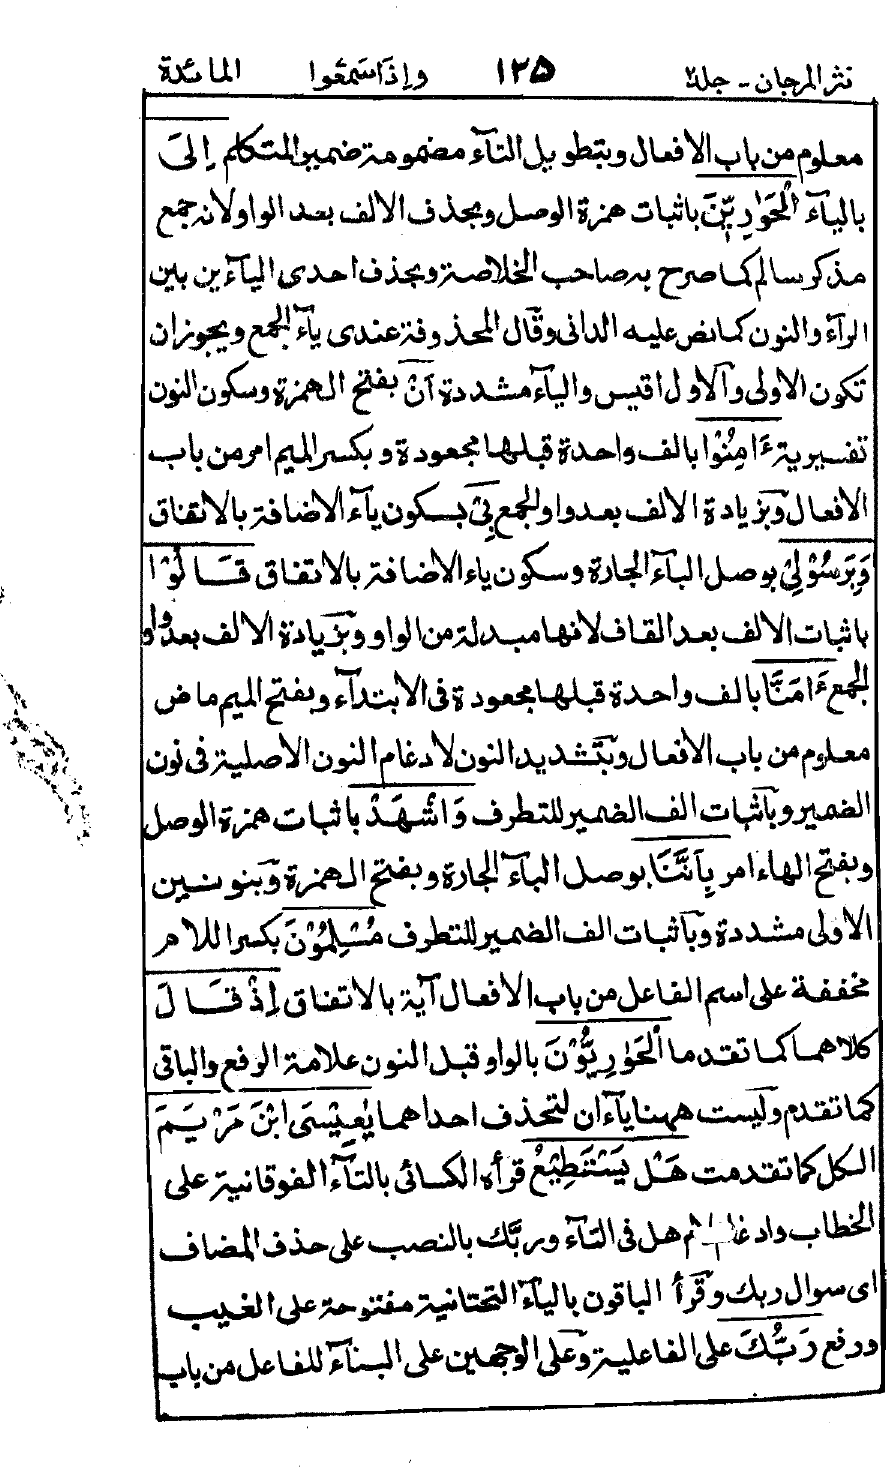 نثر المرجان - جلد٢ ١٢٥ واذا سمعوا المائدة
معلوم من باب الافعال وبتطويل التآء مضمومة ضمير المتكلم اِلَى
باليآء الْحَوٰارِيّٖنَ باثبات همزة الوصل وبحذف الالف بعد الواو لانه جمع
مذكر سالم كما صرح به صاحب الخلاصة وبحذف احدى اليآءين بين
الرآء والنون كما نص عليه الدانى وقال المحذوفة عندى يآء الجمع ويجوز ان
تكون الاولى والاول اقيس واليآء مشددة اَنْ بفتح الهمزة وسكون النون
تفسيرية ءَامِنُوْا بالف واحدة قبلها مجعودة وبكسر الميم امر من باب
الافعال وبزيادة الالف بعد واو الجمع بِىْ بسكون يآء الاضافة بالاتفاق
وَبِرَسُوْلِىْ بوصل البآء الجارة وسكون ياء الاضافة بالاتفاق قَالُوْا
باثبات الالف بعد القاف لانها مبدلة من الواو وبزيادة الالف بعد واو
الجمع ءَامَنَّا بالف واحدة قبلها مجعودة فى الابتدآء وبفتح الميم ماض
معلوم من باب الافعال وبتشديد النون لادغام النون الاصلية فى نون
الضمير وباثبات الف الضمير للتطرف وَاشْهَدْ باثبات همزة الوصل
وبفتح الهاء امر بِاَنَّنَا بوصل البآء الجارة وبفتح الهمزة وبنونين
الاولى مشددة وباثبات الف الضمير للتطرف مُسْلِمُوْنَ بكسر اللام
مخففة على اسم الفاعل من باب الافعال آية بالاتفاق اِذْ قَالَ
كلاهما كما تقدما الْحَوٰارِيُّوْنَ بالواو قبل النون علامة الرفع والباقى
كما تقدم وليست ههنا يآءان لتحذف احداهما يٰعِيْسَى ابْنَ مَرْيَمَ
الكل كما تقدمت هَلْ يَسْتَطِيْعُ قرأه الكسائى بالتآء الفوقانية على
الخطاب وادغام لام هل فى التآء وربَّك بالنصب على حذف المضاف
اى سوال ربك وقرأ الباقون باليآء التحتانية مفتوحة على الغيب
ورفع رَبُّكَ على الفاعلية وعلى الوجهين على البنآء للفاعل من باب